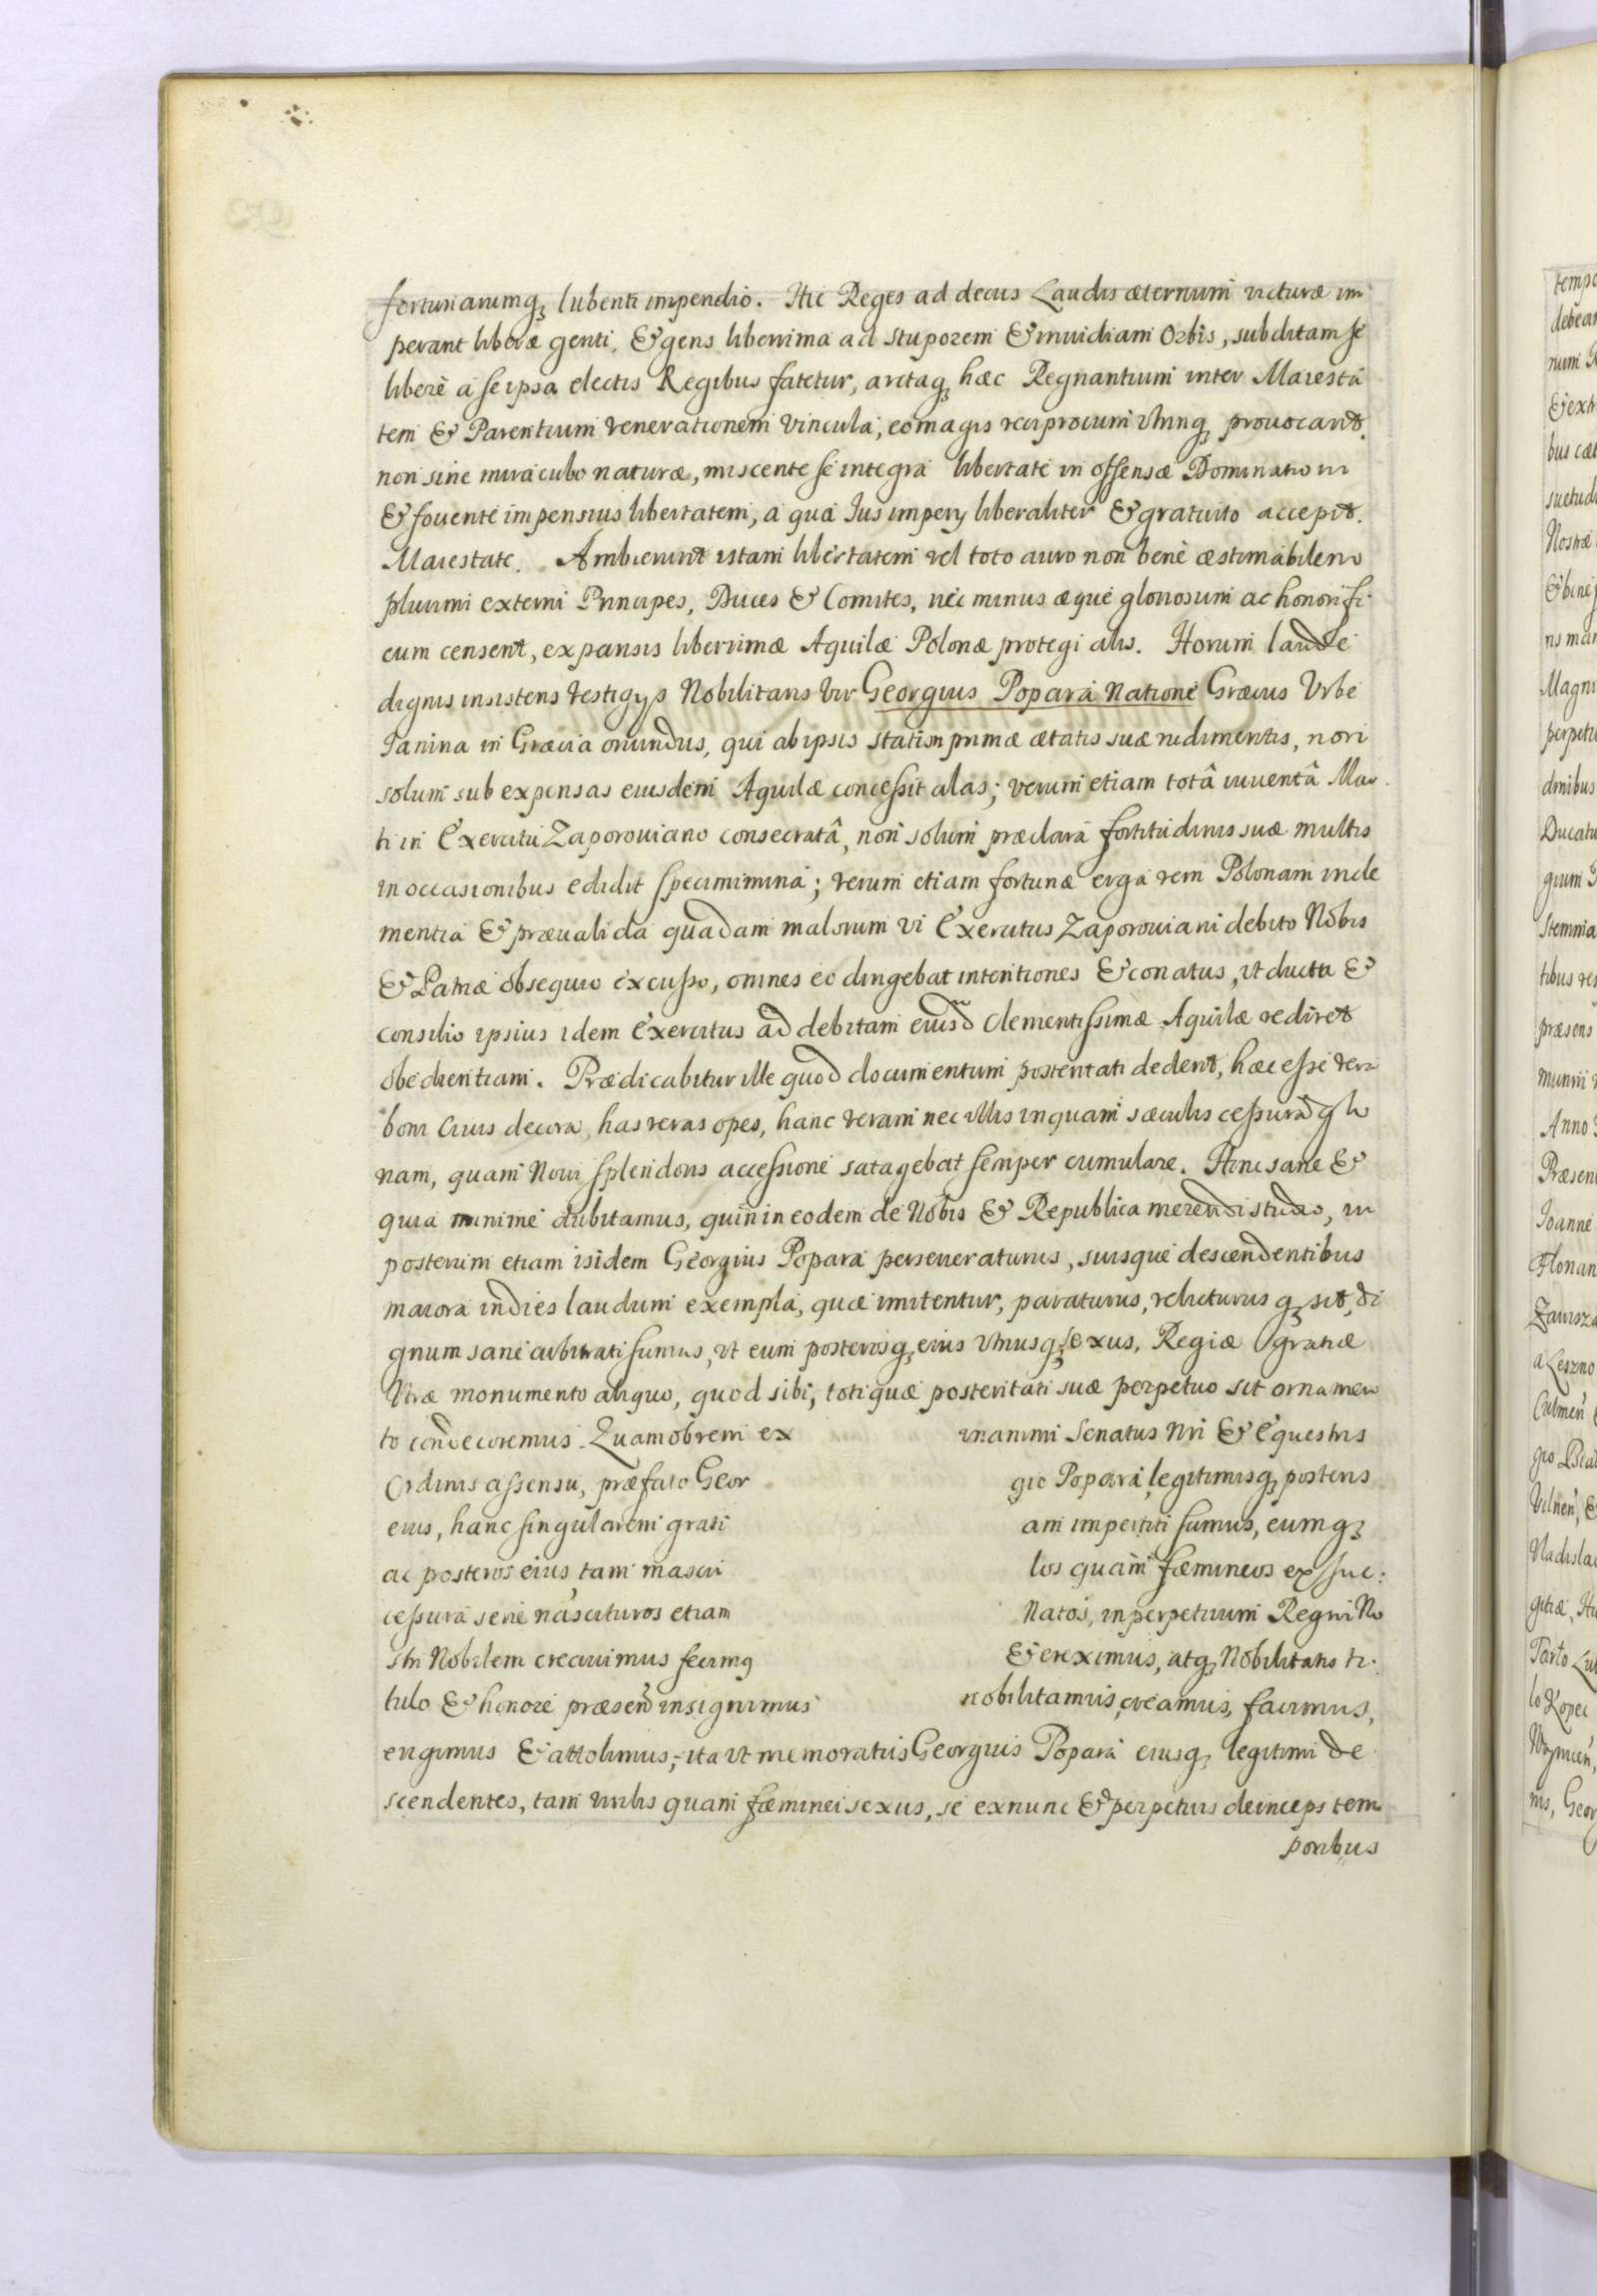 fortunarumq₃ lubenti impendio. Hic Reges ad decus Laudis æternum victuræ im
perant liberæ genti, & gens liberrima ad stuporem & invidiam Orbis, subditam se
liberè à se ipsa electis Regibus fatetur, arctaq₃ hæc Regnantium inter Maiestá
tem & Parentium venerationem vincula, eo magis reciprocum vtrinq₃ prouocant.
non sine miraculo naturæ, miscente se integra libertate in offensæ Dominationi
& fouente impensius libertatem, à qua Ius impery liberaliter & gratuito accepit.
Maiestate. Ambierunt istam libertatem vel toto auro non benè æstimabilem
plurimi externi Principes, Duces & Comites, nec minus æque gloriosum ac honorifi
cum censent, expansis liberrimæ Aquilæ Polonæ protegi alis. Horum laude
dignis insistens vestigys Nobilitaris Vir Georgius Popara Natione Græcus Vrbe
Ianina in Græcia oriundus, qui ab ipsis statim primæ ætatis suæ rudimentis, non
solum sub expansas eiusdem Aquilæ concessit alas; verum etiam totâ iuuentâ Mar
ti in Exercitu Zaporouiano consecratâ, non solum præclara fortitudinis suæ multis
in occasionibus edidit specimimina; verum etiam fortunæ erga rem Polonam incle
mentia & præualida quadam malorum vi Exercitus Zaporouiani debito Nobis
& Patriæ obsequio excusso, omnes eo dirigebat intentiones & conatus, vt ductu &
consilio ipsius idem Exercitus ad debitam eiusd Clementissimæ Aquilæ rediret
obedientiam. Prædicabitur ille quod documentum posteritati dederit, hæc esse vera
boni Ciuis decora, has veras opes, hanc veram nec vllis inquam sæculis cessuram glo
riam, quam Noui splendoris accessione satagebat semper cumulare. Hinc sane &
quia minime dubitamus, quin in eodem de Nobis & Republica merendi studio, in
posterum etiam isidem Georgius Popara perseueraturus, suisque descendentibus
maiora indies laudum exempla, quæ imitentur, paraturus, relicturusq₃ sit, di
gnum sane arbitrati sumus, vt eum posterosq₃ eius vtriusq₃ sexus, Regiæ gratiæ
Nræ monumento aliquo, quod sibi, totiquæ posteritati suæ perpetuo sit ornamen
to condecoremus. Quamobrem ex vnanimi Senatus Nri & Equestris
Ordinis assensu, præfato Geor gio Popara, legitimisq₃ posteris
eius, hanc singularem grati am impertiti sumus, eumq₃
ac posteros eius tam mascu los quam fæmineos ex suc:
cessura serie nascituros etiam Natos, in perpetuum Regni No
stri Nobilem creauimus fecimq & ereximus, atq₃ Nobilitatis ti:
tulo & honore præsen insignimus nobilitamus, creamus, facimus,
erigimus & attolimus; ita vt memoratus Georgius Popara eiusq₃ legitimi de
scendentes, tam virilis quam fæminei sexus, se exnunc & perpetuis deinceps tem
poribus